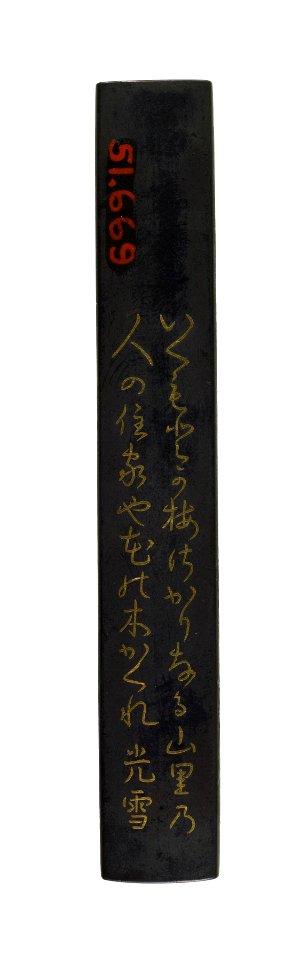 51.669
いくもとか梅はかりなる山里乃
人の住家や花の木かくれ 光雪